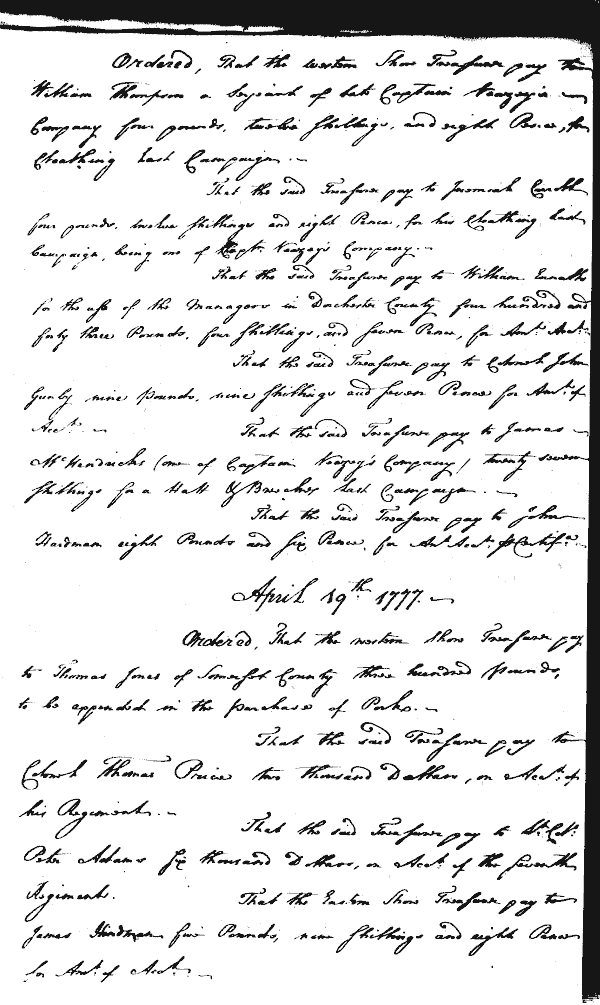 Ordered, That the western Shore Treasurer pay to
William Thompson a Serjeant of late Captain Veazey's
Company four pounds, twelve Shillings, and eight Pence, for
Cloathing last Campaign.
That the said Treasurer pay to Jeremiah
four pounds, twelve Shillings and eight Pence, for his Cloathing last
Campaign, being one of Capt. Veazey's Company.
That the said Treasurer pay to William Ennalls
for the use of the Managers in Dorchester County four hundred and
forty three Pounds, four Shillings, and seven Pence, for Amt. Acct.
That the said Treasurer pay to Colonel John
Gunby nine pounds, nine Shillings and seven Pence for Amt. of
Acct. That the said Treasurer pay to James
McKendricks (one of Captain Veazey's Company) twenty seven
Shillings for a Hatt & Breeches last Campaign.
That the said Treasurer pay to John
Hardman eight Pounds and six Pence, for Amt. Acct. & Certifa.
April 19th 1777.
Ordered, That the western Shore Treasurer pay
to Thomas Jones of Somerset County three hundred pounds,
to be appended in the purchase of Pork.
That the said Treasurer pay to
Colonel Thomas Price two thousand Dollars, on Acct. of
his Regiment.
That the said Treasurer pay to Lt. Col.
Peter Adams Six thousand Dollars, on Acct. of the Seventh
Regiment. That the Eastern Shore Treasurer pay to
James Hindman five Pounds, nine Shillings and eight Pence
for Amt. of Acct.